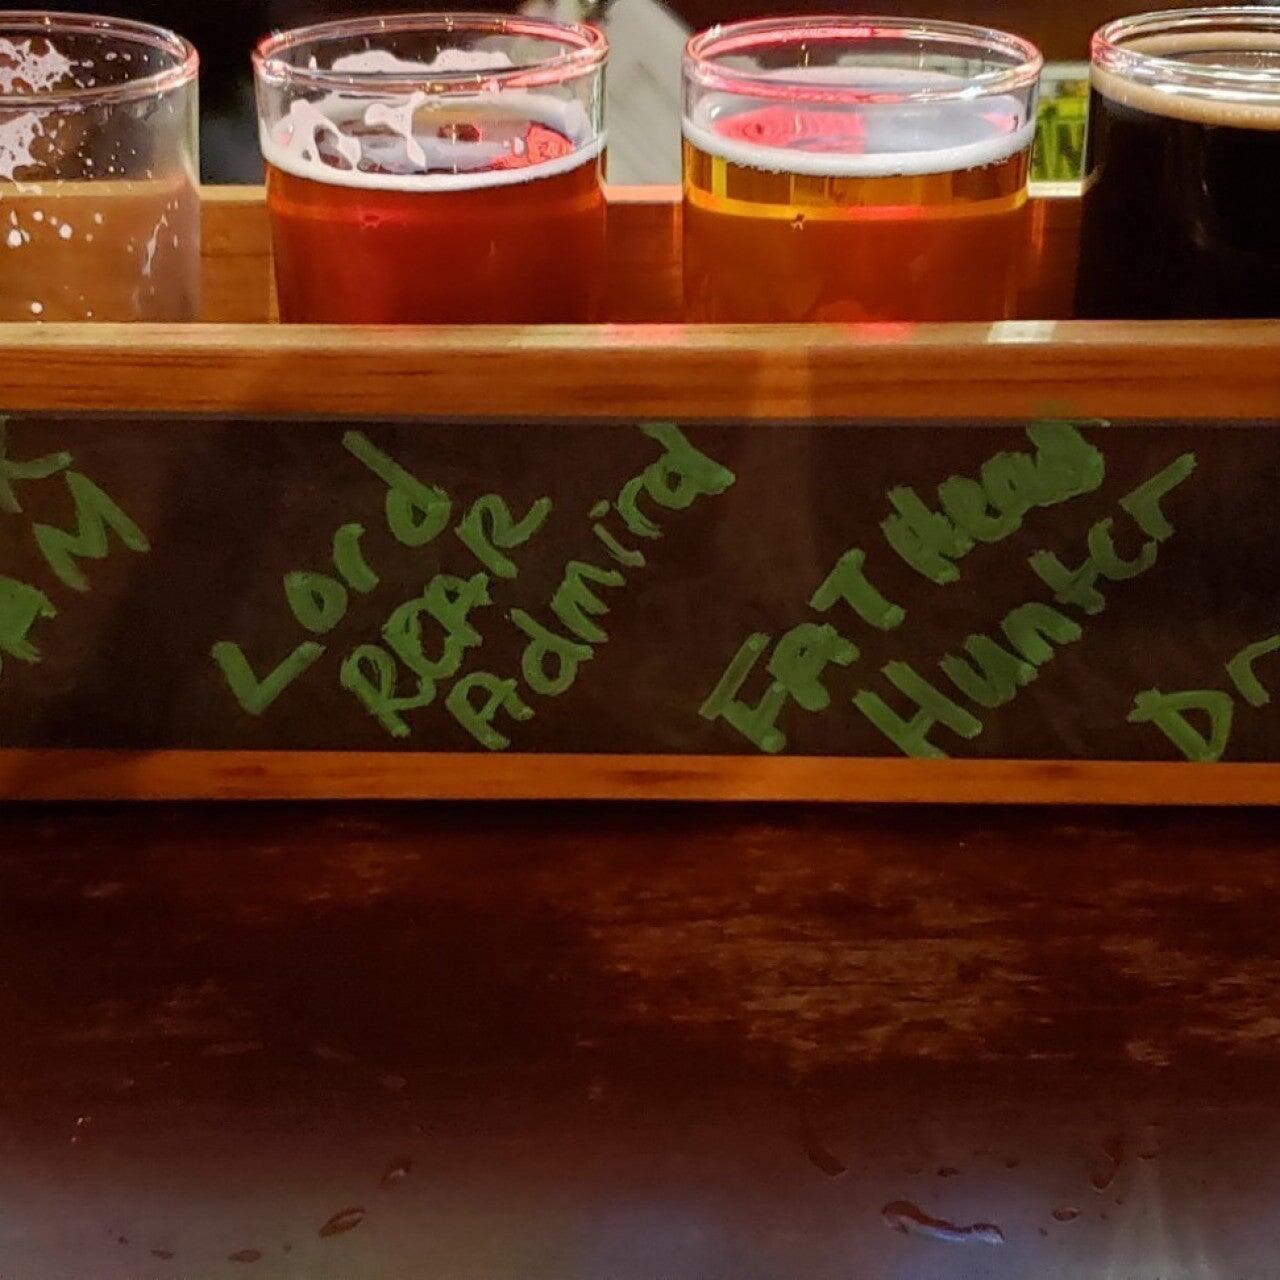 AM
Lord
REAR
Admiral
FAT Head
Hunter
Dr
AN